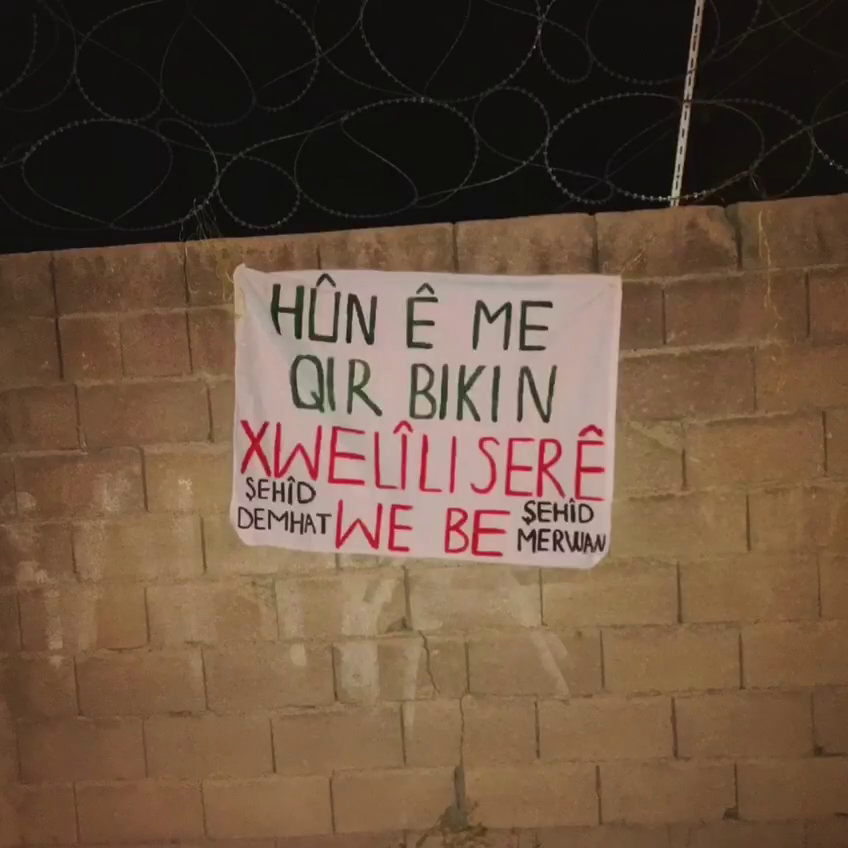 HÛN Ê ME
QIR BIKIN
XWELÎLI SERÊ
WE BE
ŞEHÎD
DEMHAT
ŞEHÎD
MERWAN